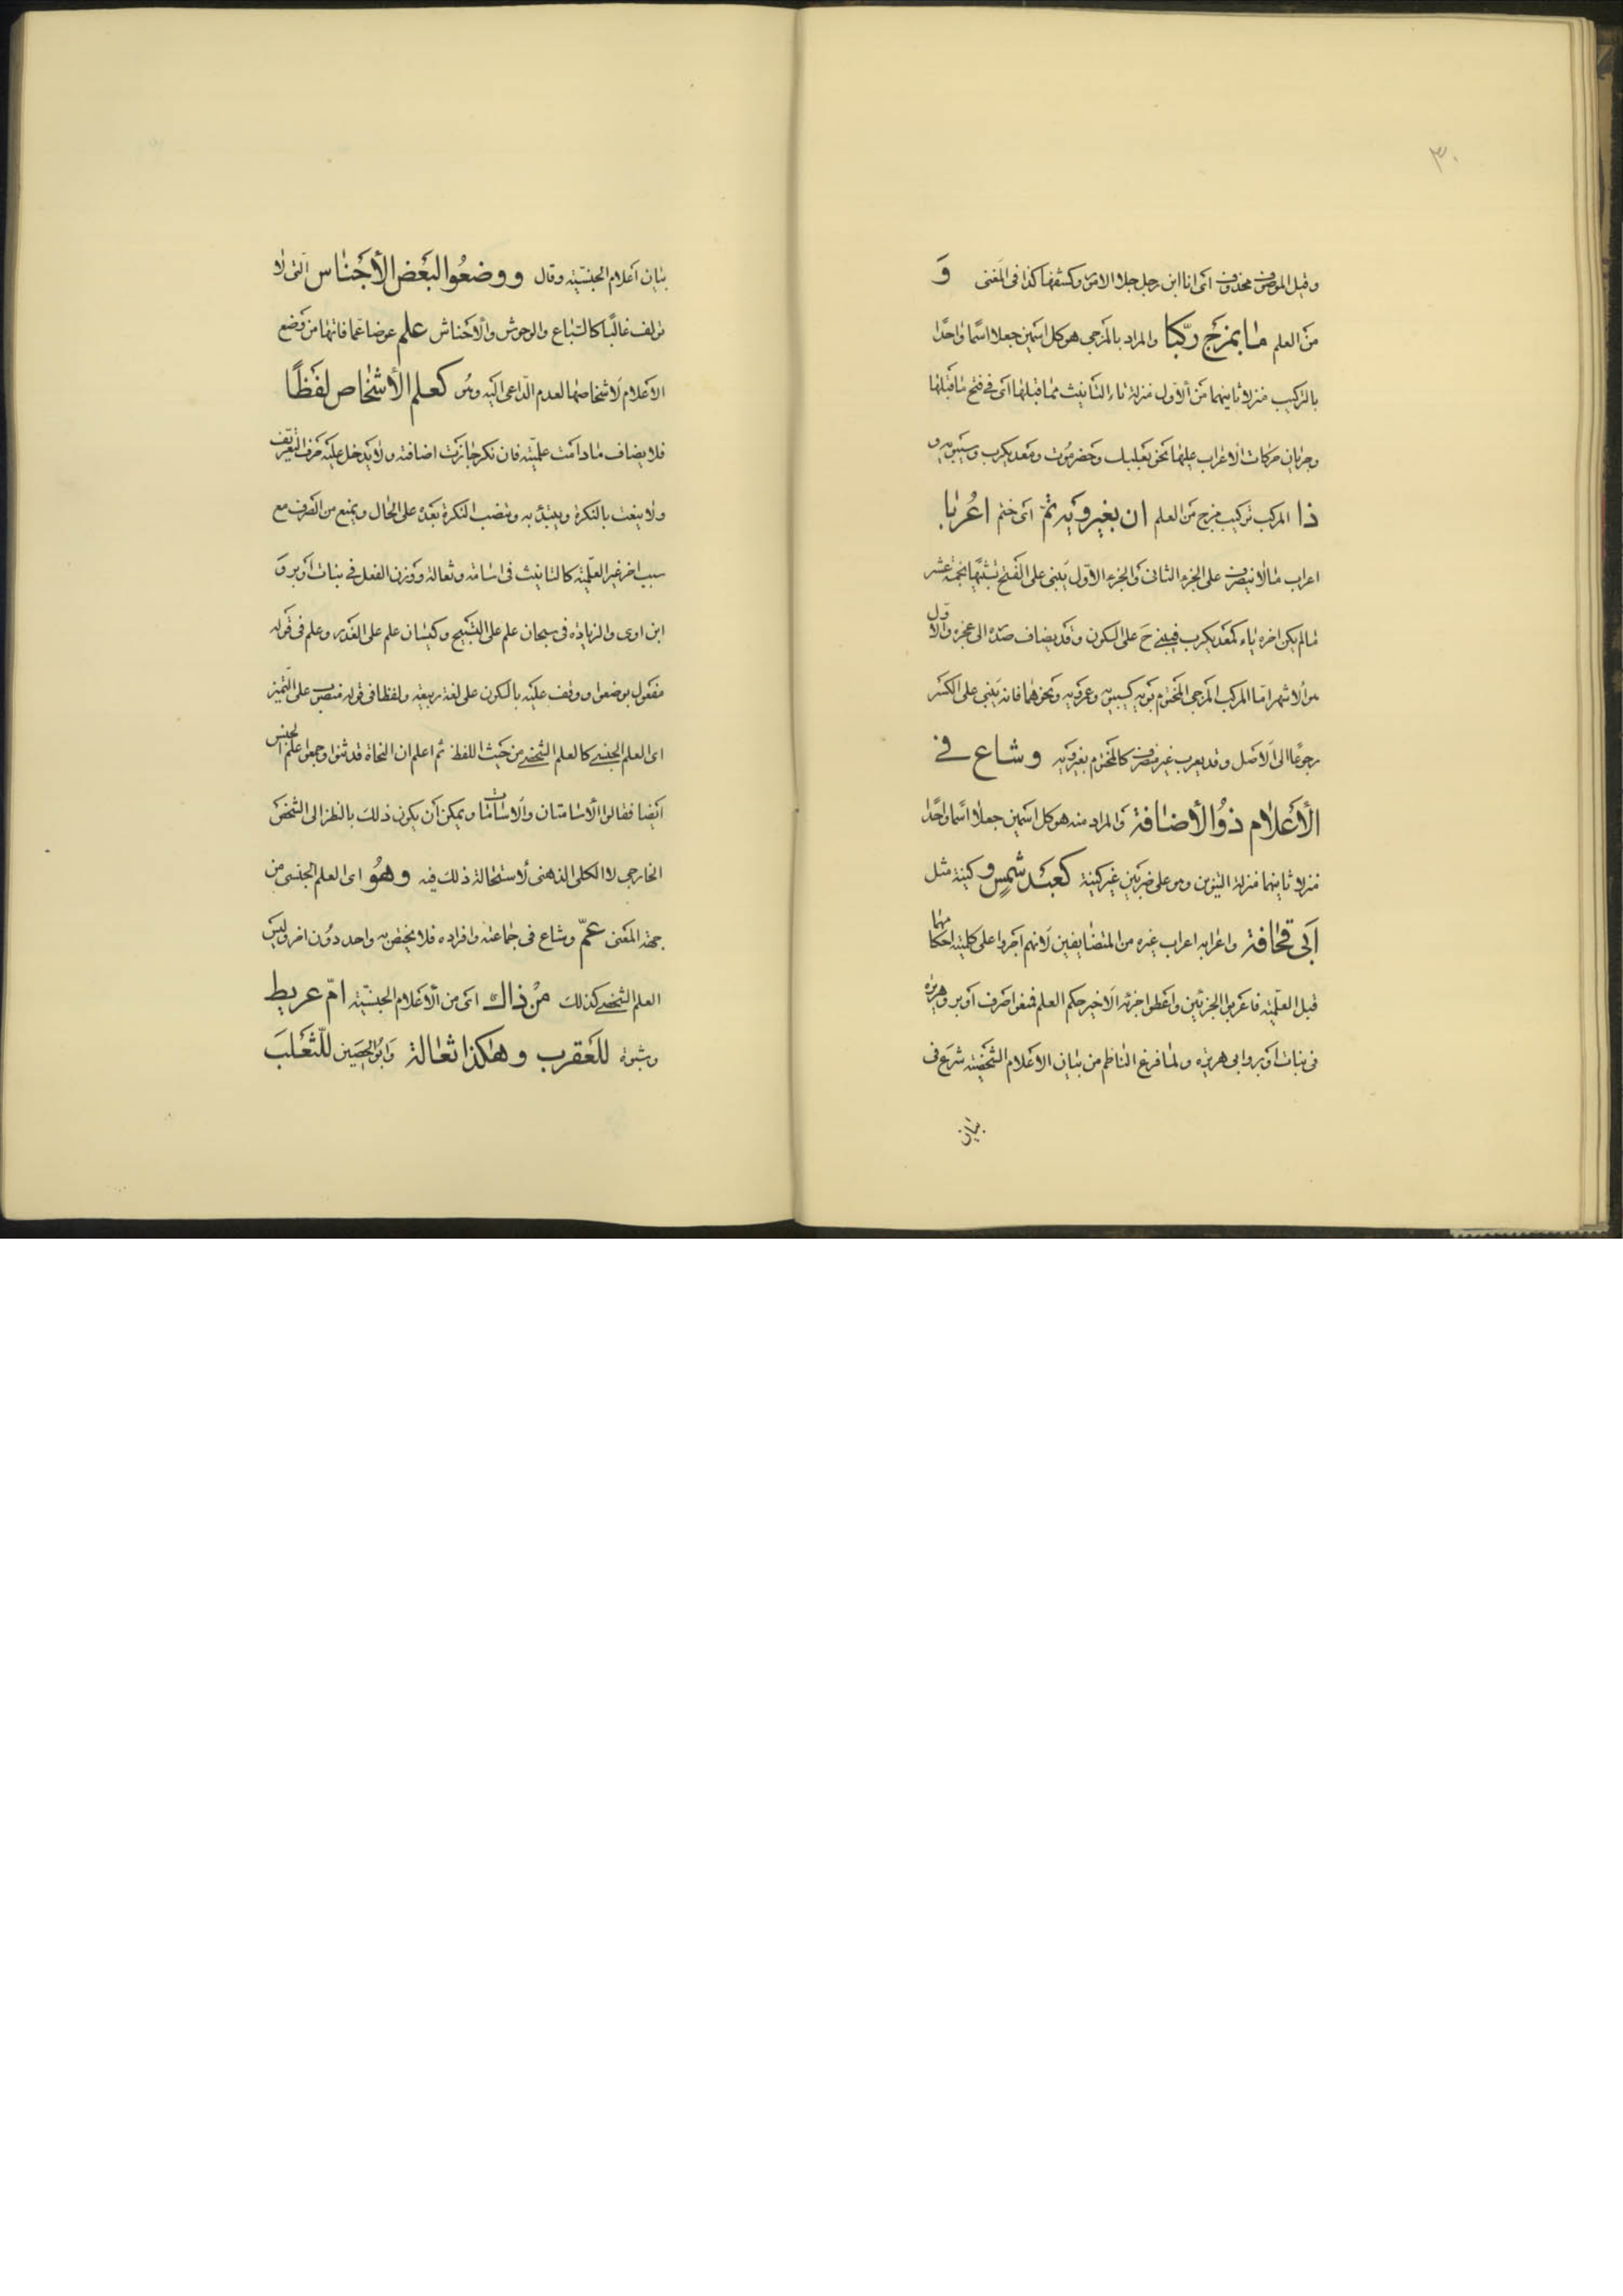 ٣٠
وقيل الموصوف محذوف اى انا ابن رجل جلا الامور وكشفها كذا فى المغنى وَ
من العلم ما بمزج ركّبا والمراد بالمزجى هو كل اسمين جعلا اسمًا واحدًا
بالتركيب منزلا ثانيهما من الاول منزلة تاء التانيث مما قبلها اى فى فتح ما قبلها
وجريان حركات الاعراب عليها نحو بعلبك وحضرموت ومعديكرب وسيبويه و
ذا المركب تركيب مزج من العلم ان بغير ويه تمّ اى ختم اعُربا
اعراب ما لا ينصرف على الجزء الثانى والجزء الاول يبنى على الفتح تشبيها بخمسة عشر
ما لم يكن اخره ياء كمعديكرب فيبنى ح على السكون وقد يضاف صدره الى عجزه والاول
هو الاشهر امّا المركب المزجى المختوم بويه كسيبويه وعمرويه ونحوهما فانه يبنى على الكسر
رجوعًا الى الاصل وقد يعرب غير منصرف كالمختوم بغير ويه وشاع فى
الأعلام ذوُ الأضافة والمراد منه هو كل اسمين جعلا اسما واحدًا
منزلا ثانيهما منزلة التنوين وهو على ضربين غير كنية كعبد شمسٍ و كنية مثل
ابى قحافة واعرابه اعراب غيره من المتضايفين لانهم اجروا على كلمتيه احكامهما
قبل العلميّة فاعربوا الجزئين واعطوا جزئه الاخير حكم العلم فمنعوا صرف اوبر وهريرة
فى بنات اوبر وابى هريرة ولما فرغ الناظم من بيان الاعلام الشخصيّة شرع فى
بيان
بيان اعلام الجنسيّة وقال ووضعُوا لبعض الأجناس التى لا
تولف غالبًا كالسّباع والوحوش والاحناش علم عوضا عما فاتها من وضع
الاعلام لاشخاصها لعدم الدّاعى اليه وهو كعلم الأشخاص لفظًا
فلا يضاف ما دامت علميّته فان نكر جازت اضافته ولا يدخل عليه حرف التعريف
ولا ينعت بالنكرة ويبتدء به وتنصب النكرة بعده على الحال ويمنع من الصرف مع
سبب اخر غير العلميّة كالتانيث فى اسامة وثعالة ووزن الفعل فى بنات اوبر و
ابن اوى والزيادة فى سبحان علم على التسبيح وكيسان علم على الغدر وعلم فى قوله
مفعول بوضعوا ووقف عليه بالسكون على لغة ربيعة ولفظا فى قوله منصوب على التميز
اى العلم الجنسى كالعلم الشخصى من حيث اللفظ ثم اعلم ان النحاة قد ثنوا وجمعوا علم الجنس
ايضا فقالوا الاسامتان والاسامات ويمكن ان يكون ذلك بالنظر الى الشخص
الخارجى لا الكلى الذهنى لاستحالة ذلك فيه وهوُ اى العلم الجنسى من
جهة المعنى عمّ وشاع فى جماعته وافراده فلا يختص به واحد دوُن اخر وليس
العلم الشخصى كذلك من ذاك اى من الاعلام الجنسيّة امّ عريط
وشبوة للعقرب وهكذا ثعالة وابو الحصين للثّعلب